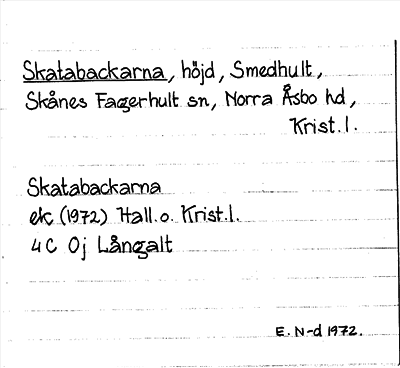 Skatabackarna, höjd, Smedhult,
Skånes Fagerhult sn, Norra Åsbo hd,
Krist.l.
Skatabackarna
ek (1972) Hall.o. Krist.l.
4C Oj Långalt
E. N-d 1972.